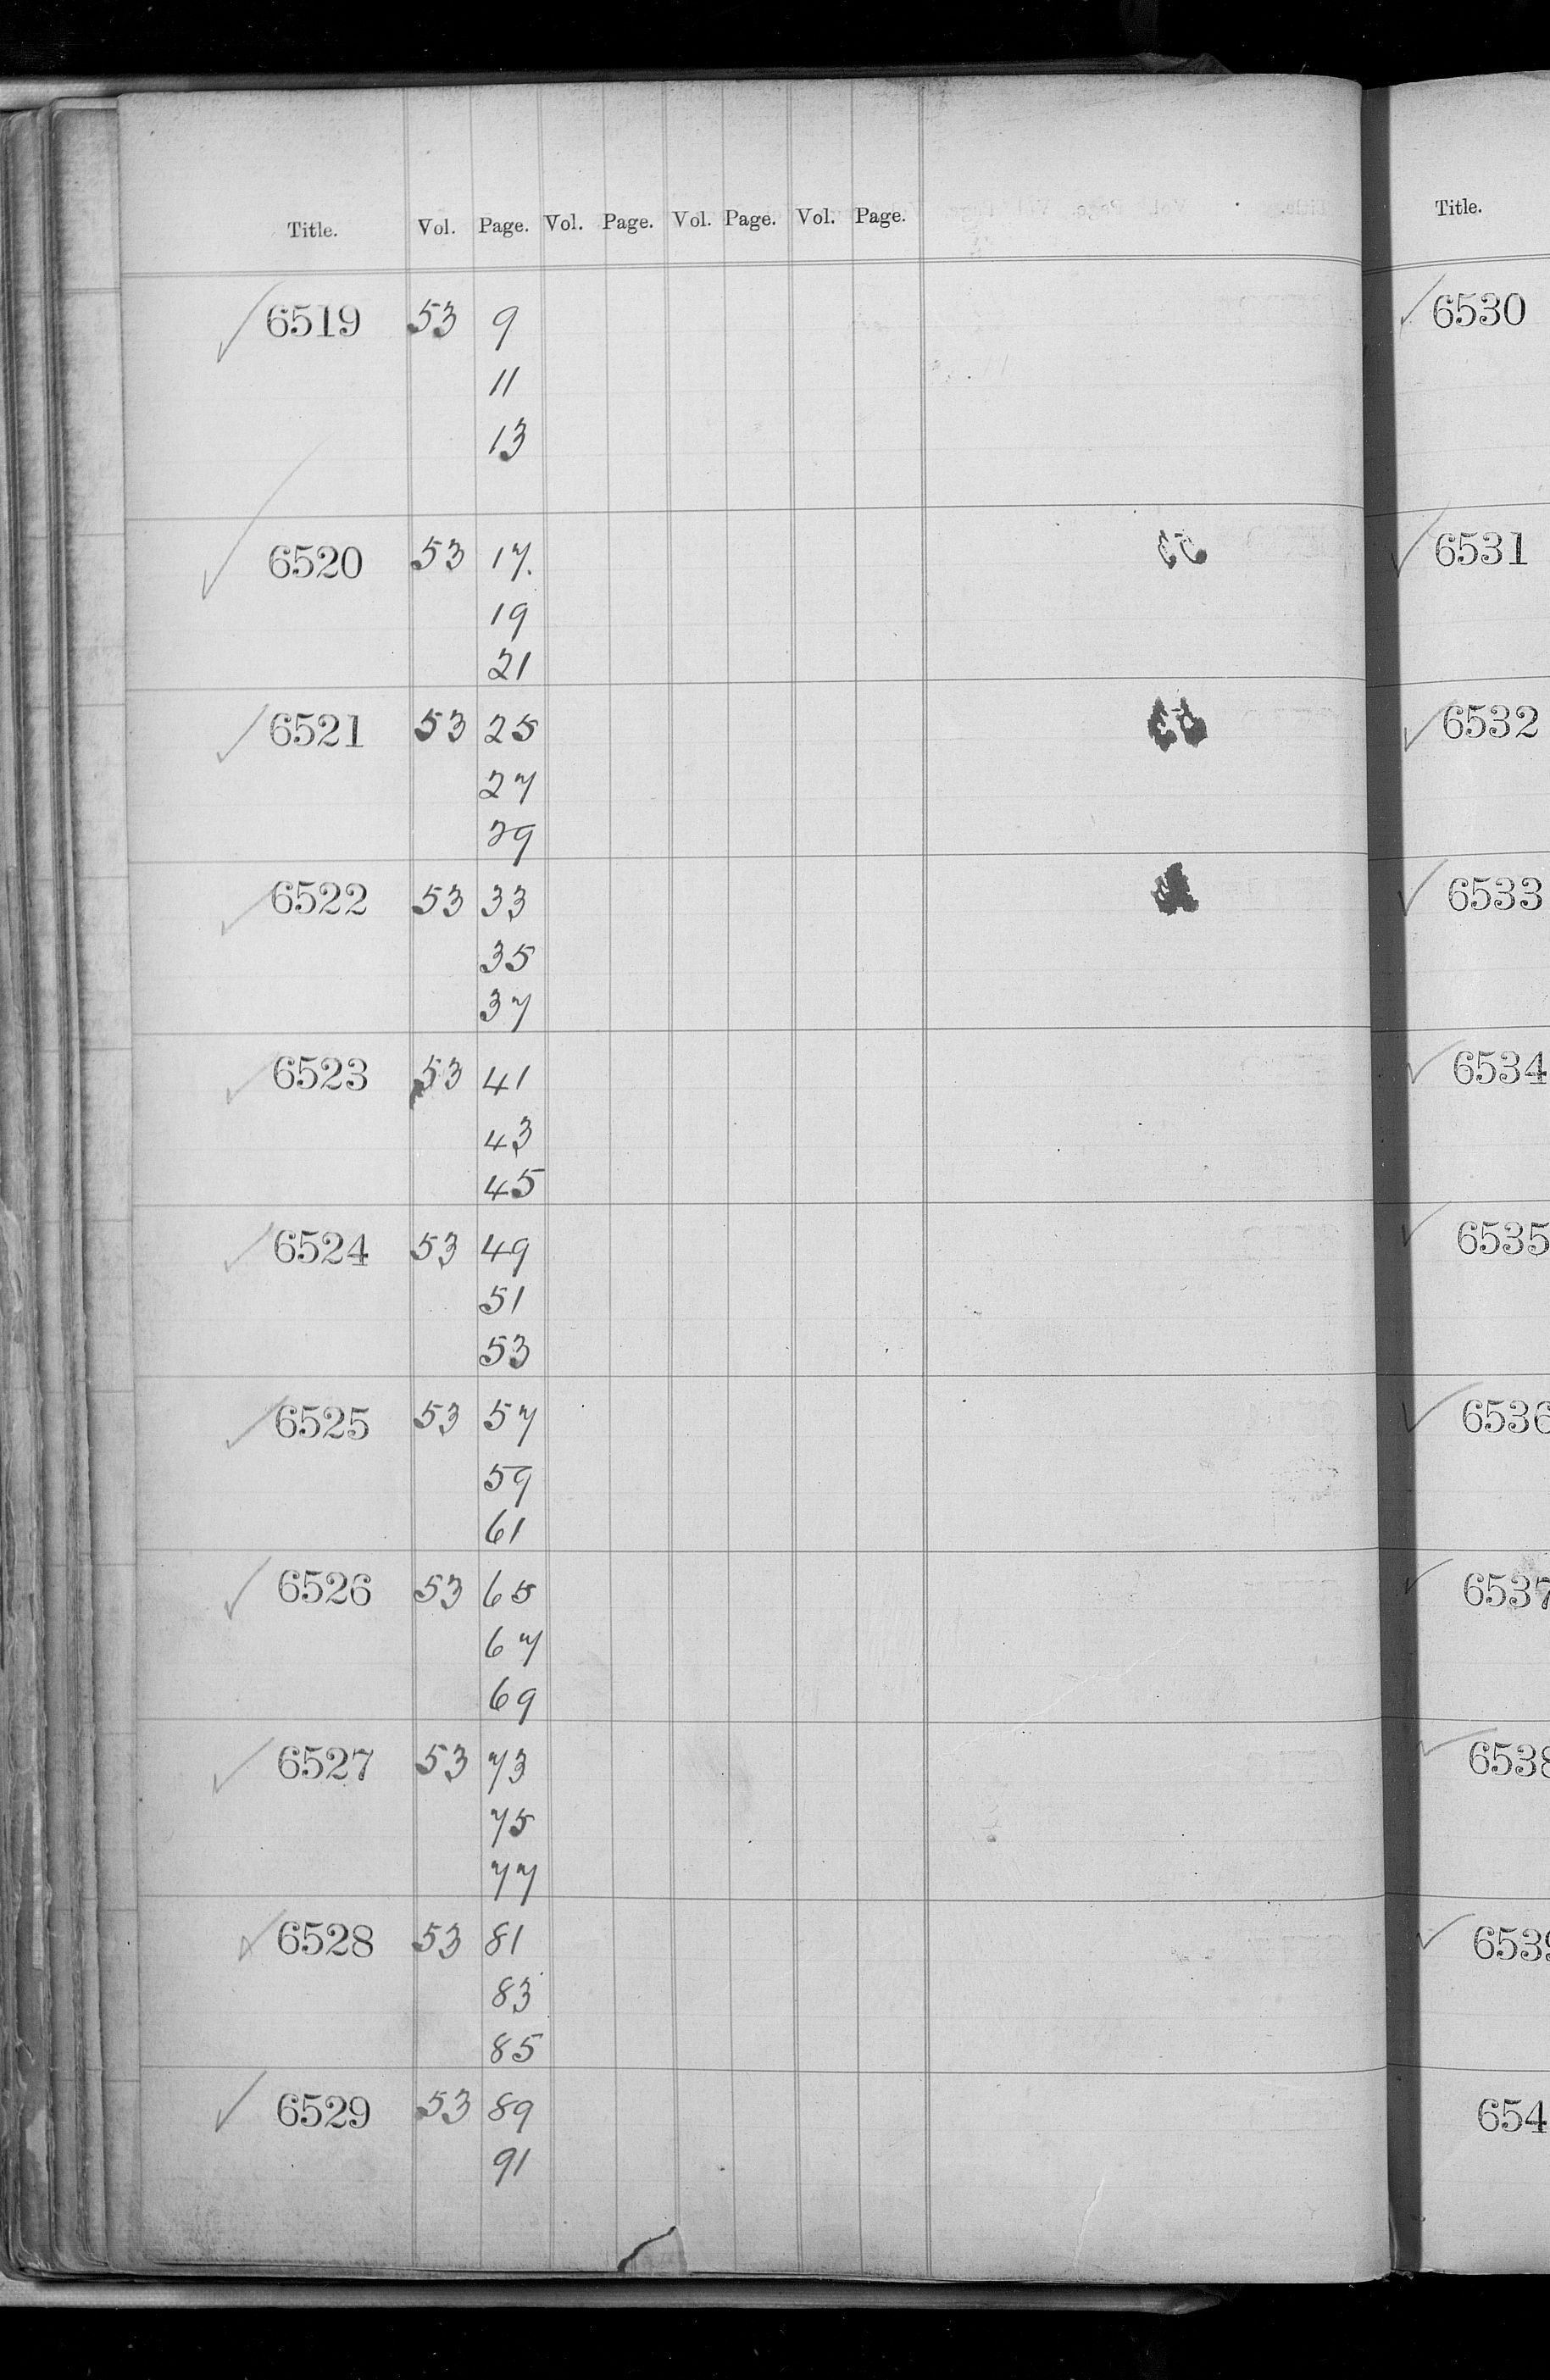 Title. Vol. Page. Vol. Page. Vol. Page. Vol. Page.
6519 53 9
11
13
6520 53 17.
19
21
6521 53 25
27
29
6522 53 33
35
37
6523 53 41
43
45
6524 53 49
51
53
6525 53 57
59
61
6526 53 65
67
69
6527 53 73
75
77
6528 53 81
83
85
6529 53 89
91
Title.
6530
6531
6532
6533
6534
6535
6536
6537
6538
6539
654